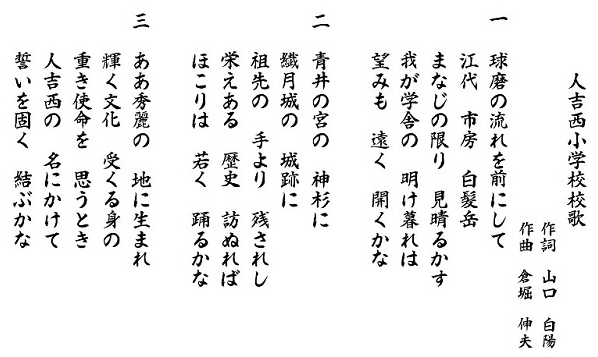 人吉西小学校校歌
作詞 山口 白陽
作曲 倉堀 伸夫
一
球磨の流れを前にして
江代 市房 白髪岳
まなじの限り 見晴るかす
我が学舎の 明け暮れは
望みも 遠く 開くかな
二
青井の宮の 神杉に
繊月城の 城跡に
祖先の 手より 残されし
栄えある 歴史 訪ぬれば
ほこりは 若く 踊るかな
三
ああ秀麗の 地に生まれ
輝く文化 受くる身の
重き使命を 思うとき
人吉西の 名にかけて
誓いを固く 結ぶかな